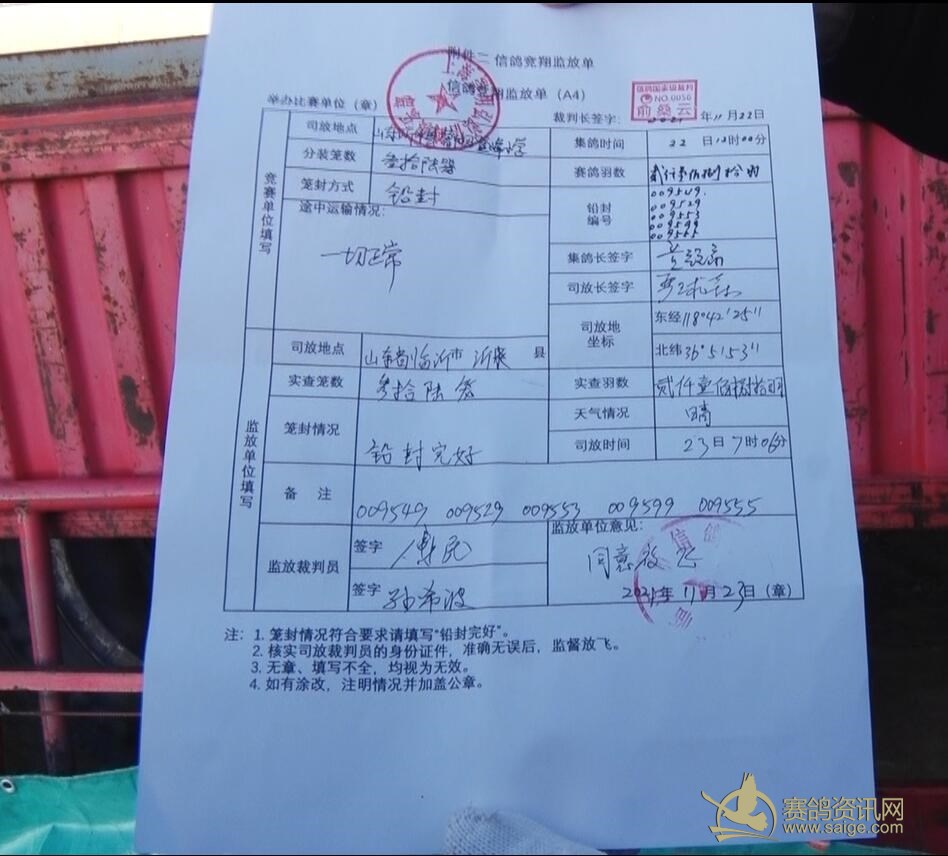 附件二 信鸽竞翔监放单
信鸽竞翔监放单（A4）
信鸽国家级裁判
NO.0056
俞桑云
举办比赛单位（章）
裁判长签字：
2021年11月22日
竞赛单位填写
司放地点
集鸽时间 22日12时00分
分装笼数 叁拾陆笼
赛鸽羽数 贰仟壹佰捌拾羽
笼封方式 铅封
铅封编号
009549.
009529
009553
009599
009555
途中运输情况：
一切正常
集鸽长签字
司放长签字
司放地坐标
东经118°42'25"
北纬36°5153"
监放单位填写
司放地点 山东省临沂市 沂水 县
实查笼数 叁拾陆笼
实查羽数 贰仟壹佰捌拾羽
笼封情况 铅封完好
天气情况 晴
司放时间 23日7时06分
备 注 009549 009529 009553 009599 009555
监放裁判员
签字
签字 孙希波
监放单位意见：
同意放飞
2021年11月23日（章）
注：1. 笼封情况符合要求请填写“铅封完好”。
2. 核实司放裁判员的身份证件，准确无误后，监督放飞。
3. 无章、填写不全，均视为无效。
4. 如有涂改，注明情况并加盖公章。
赛鸽资讯网
www.saige.com